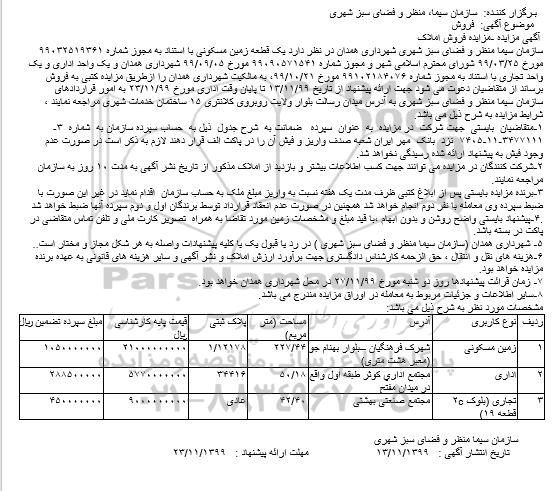 برگزار کننده: سازمان سیما، منظر و فضای سبز شهری
موضوع آگهی: فروش
آگهی مزایده -مزایده فروش املاک
سازمان سیما منظر و فضای سبز شهری شهرداری همدان در نظر دارد یک قطعه زمین مسکونی با استناد به مجوز شماره ۹۹۰۳۲۵۱۹۳۶۱
مورخ ۹۹/۰۳/۲۵ شورای محترم اسلامی شهر و مجوز شماره ۹۹۰۹۰۵۷۱۵۴۱ مورخ ۹۹/۰۹/۰۵ شهرداری همدان و یک واحد اداری و یک
واحد تجاری با استناد به مجوز شماره ۹۹۱۰۲۱۸۴۰۷۶ مورخ ۹۹/۱۰/۲۱، به مالکیت شهرداری همدان را ازطریق مزایده کتبی به فروش
برساند از متقاضیان دعوت می شود جهت ارائه پیشنهاد از تاریخ ۱۳/۱۱/۹۹ تا پایان وقت اداری مورخ ۲۳/۱۱/۹۹ به امور قراردادهای
سازمان سیما منظر و فضای سبز شهری به آدرس میدان رسالت بلوار ولایت روبروی کلانتری ۱۵ ساختمان خدمات شهری مراجعه نمایند ،
شرایط مزایده به شرح ذیل می باشد.
۱-متقاضیان بایستی جهت شرکت در مزایده به عنوان سپرده ضمانت به شرح جدول ذیل به حساب سپرده سازمان به شماره ۳-
۷۴۰۵-۱۱-۳۴۷۷۱۱۱ نزد بانک مهر ایران شعبه صدف واریز و فیش آن را در پاکت الف قرار دهند لازم به ذکر است در صورت عدم
وجود فیش به پیشنهاد ارائه شده رسیدگی نخواهد شد.
۲-شرکت کنندگان در مزایده می توانند جهت کسب اطلاعات بیشتر و بازدید از املاک مذکور از تاریخ نشر آگهی به مدت ۱۰ روز به سازمان
مراجعه نمایند.
۳-برنده مزایده بایستی پس از ابلاغ کتبی ظرف مدت یک هفته نسبت به واریز مبلغ ملک به حساب سازمان اقدام نماید در غیر این صورت با
ضبط سپرده وی معامله با نفر دوم انجام خواهد شد همچنین در صورت عدم انعقاد قرارداد توسط برندگان اول و دوم سپرده آنها ضبط خواهد شد
۴-پیشنهاد بایستی واضح روشن و بدون ابهام ،با قید مبلغ و مشخصات زمین مورد تقاضا به همراه تصویر کارت ملی و تلفن تماس متقاضی در
پاکت در بسته باشد
۵- شهرداری همدان (سازمان سیما منظر و فضای سبز شهری ) در رد یا قبول یک یا کلیه پیشنهادات واصله به هر شکل مجاز و مختار است..
۶-هزینه های نقل و انتقال ، حق الزحمه کارشناس دادگستری جهت برآورد ارزش املاک و نشر آگهی و سایر هزینه های قانونی به عهده برنده
مزایده خواهد بود.
۷- زمان قرائت پیشنهادها روز دو شنبه مورخ ۲۷/۱۱/۹۹ در محل شهرداری همدان خواهد بود.
۸-سایر اطلاعات و جزئیات مربوط به معامله در اوراق مزایده مندرج می باشد.
مشخصات مورد نظر به شرح ذیل می باشد:
ردیف نوع کاربری آدرس مساحت (متر مربع) پلاک ثبتی قیمت پایه کارشناسی ریال مبلغ سپرده تضمین ریال
۱ زمین مسکونی شهرک فرهنگیان _بلوار بهنام جو (معبر هشت متری) ۲۲۷/۴۴ ۱/۱۲۱۷۸ ۲۱۰۰۰۰۰۰۰۰۰ ۱۰۵۰۰۰۰۰۰۰
۲ اداری مجتمع اداری کوثر طبقه اول واقع در میدان مفتح ۵۰/۱۸ ۳۴۴۱۶ ۵۷۷۰۰۰۰۰۰۰ ۲۸۸۵۰۰۰۰۰
۳ تجاری (بلوک c۲ قطعه ۱۹) مجتمع صنعتی بهشتی ۴۲/۴۰ عادی ۹۰۰۰۰۰۰۰۰۰ ۴۵۰۰۰۰۰۰۰
سازمان سیما منظر و فضای سبز شهری
تاریخ انتشار آگهی : ۱۳/۱۱/۱۳۹۹ مهلت ارائه پیشنهاد : ۲۳/۱۱/۱۳۹۹